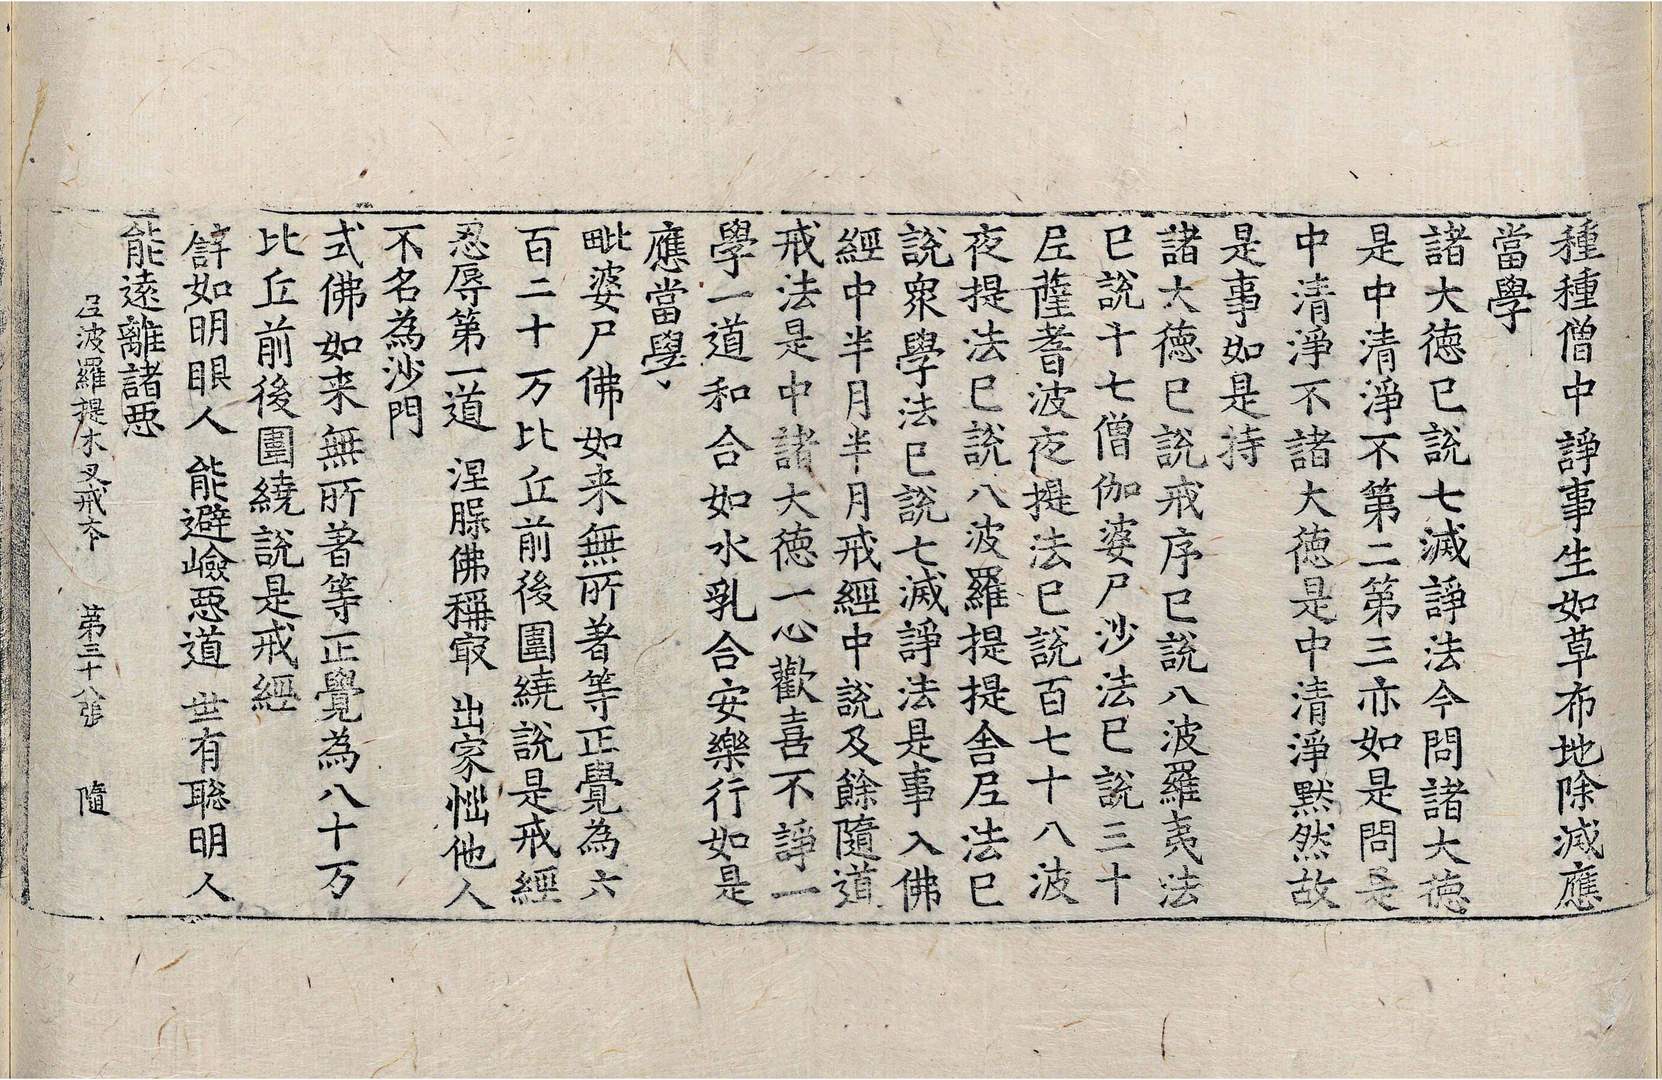 種種僧中諍事生如草布地除滅應
當學
諸大德已說七滅諍法今問諸大德
是中清淨不第二第三亦如是問是
中清淨不諸大德是中清淨默然故
是事如是持
諸大德已說戒序已說八波羅夷法
已說十七僧伽婆尸沙法已說三十
尼薩耆波夜提法已說百七十八波
夜提法已說八波羅提提舍尼法已
說衆學法已說七滅諍法是事入佛
經中半月半月戒經中說及餘隨道
戒法是中諸大德一心歡喜不諍一
學一道和合如水乳合安樂行如是
應當學
毗婆尸佛如来無所著等正覺為六
百二十万比丘前後圍繞說是戒經
忍辱第一道 涅脲佛稱㝡 出家惱他人
不名為沙門
式佛如来無所著等正覺為八十万
比丘前後圍繞說是戒經
辟如明眼人 能避嶮惡道 世有聡明人
能遠離諸惡
尼波羅提木叉戒夲 第三十八張 隨